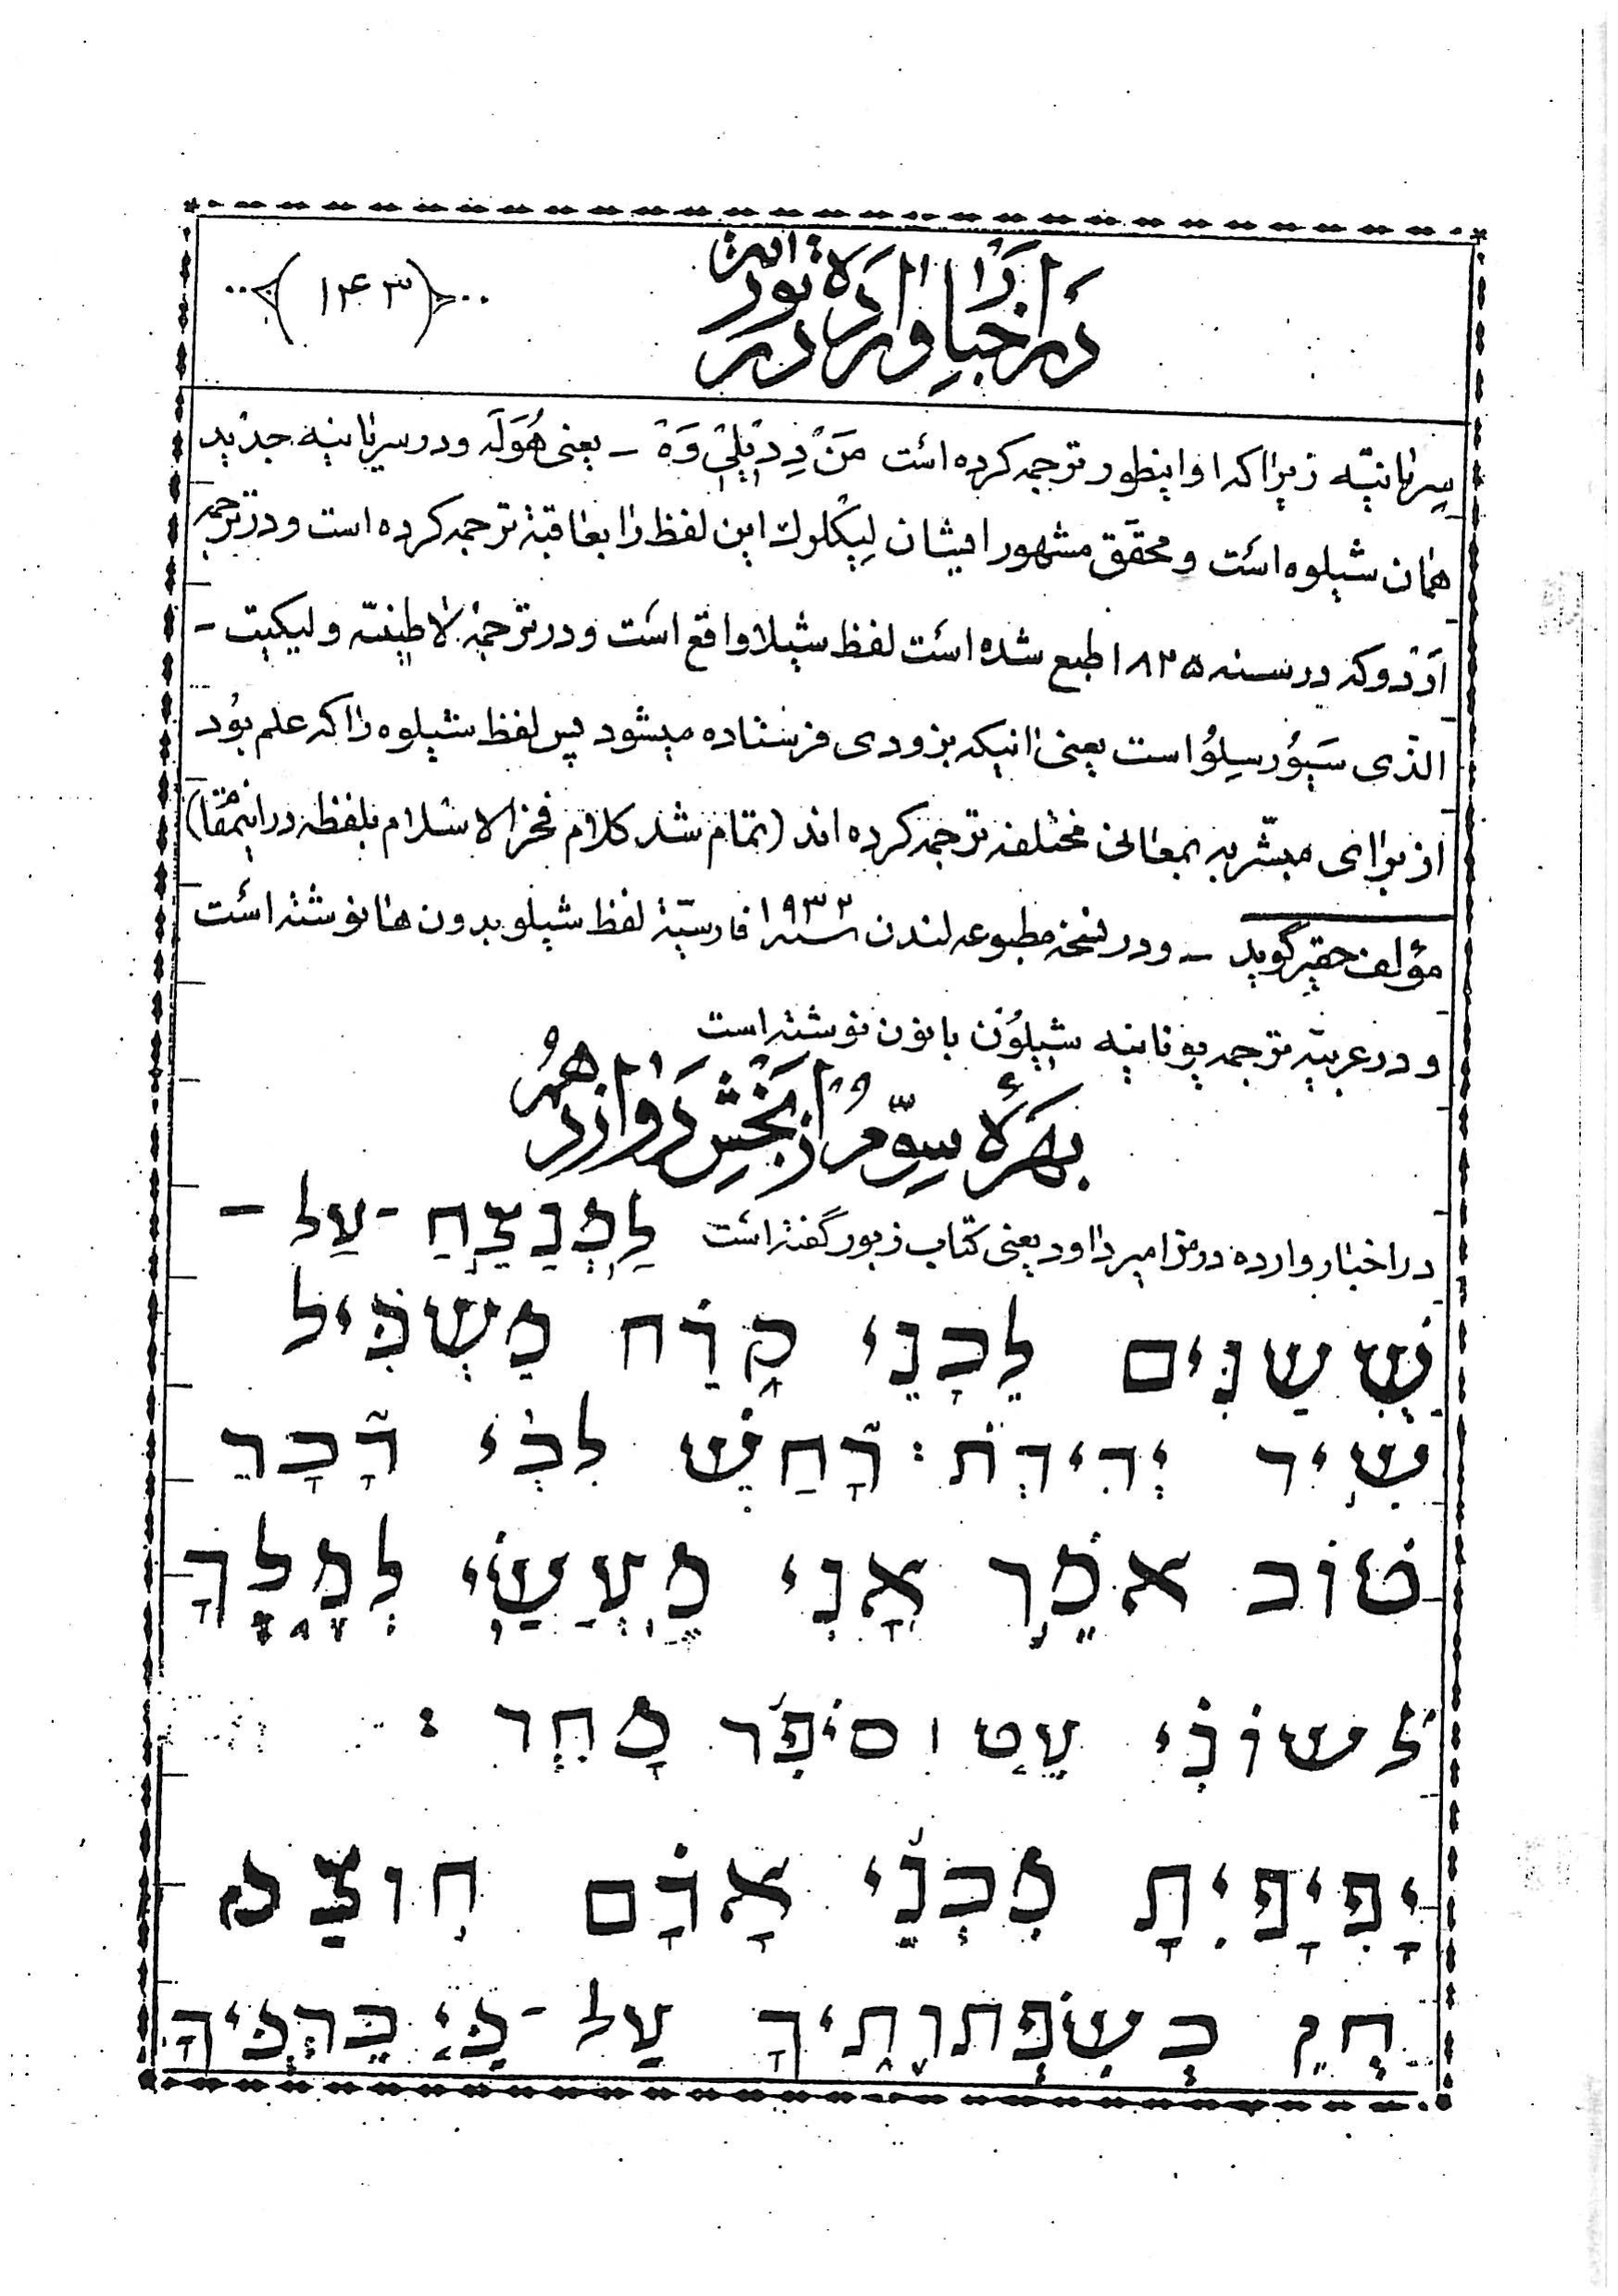 در اخبار وارده در توراة
﴿۱۴۳﴾
سریانیّه زیرا که او اینطور ترجمه کرده است مَنْ دِدْیلِیْ وَهْ - یعنی هُوَلَه و در سریانیه جدید
همان شیلوه است و محقق مشهور ایشان لِیکلرك این لفظ را بعاقبة ترجمه کرده است و در ترجمه
اُرْدو که در سنه ۱۸۲۵ طبع شده است لفظ شیلا واقع است و در ترجمهٔ لاطینیّه ولیکیت -
الذی سَیُورسِلُو است یعنی انیکه بزودی فرستاده میشود پس لفظ شیلوه را که علم بود
از برای مبشّر به بمعانی مختلفه ترجمه کرده اند (تمام شد کلام فخر الاسلام بلفظه در اینمقام)
مؤلف حقیر گوید - و در نسخه مطبوعه لندن سنه ۱۹۳۲ فارسیّهٔ لفظ شیلو بدون ها نوشته است
و در عربیّه ترجمه یونانیه شیلوُن با نون نوشته است
بهرهٔ سوّم از بخش دوازدهم
در اخبار وارده در مزامیر داود یعنی کتاب زبور گفته است לַמְנַצֵּחַ -עַל -
שֹׁשַׁנִּים לִבְנֵי קֹרַח מַשְׂכִּיל
שִׁיר יְדִידֹת: רָחַשׁ לִבִּי דָּבָר
טוֹב אֹמֵר אָנִי מַעֲשַׂי לְמֶלֶךְ
לשוֹנִי עֵט ו סוֹפֵר מָהִר :
יָפְיָפִיתָ מִבְּנֵי אָדָם הוּצַק
חֵן בְשִׂפְתוֹתֶיךָ עַל -כֵּן בֵּרַכְךָ